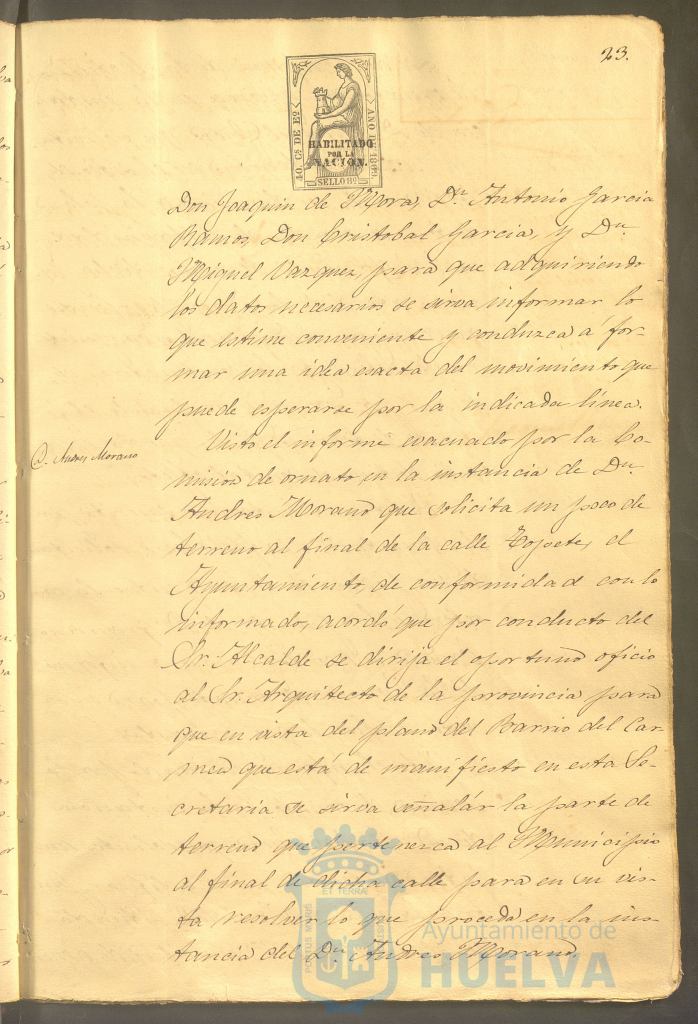 23.
40. Cs. DE Eo.
AÑO DE 1869.
HABILITADO
POR LA
NACION.
SELLO 8º
Don Joaquin de Mora, Dn. Antonio Garcia
Ramos, Don Cristobal Garcia, y Dn.
Miguel Vazquez, para que adquiriendo
los datos necesarios se sirva informar lo
que estime conveniente y conduzca a for-
mar una idea esacta del movimiento que
puede esperarse por la indicada línea.
D. Andres Morano
Visto el informe evacuado por la Co-
mision de ornato, en la instancia de Dn.
Andres Morano que solicita un poco de
terreno al final de la calle Topete, el
Ayuntamiento, de conformidad con lo
informado, acordó que por conducto del
Sr. Alcalde se dirija el oportuno oficio
al Sr. Arquitecto de la provincia para
que en vista del plano del Barrio del Car-
men que está de manifiesto en esta Se-
cretaria se sirva señalár la parte de
terreno que pertenezca al Municipio
al final de dicha calle para en su vis-
ta resolver lo que proceda en la ins-
tancia del Dn. Andres Morano.
Ayuntamiento de
HUELVA